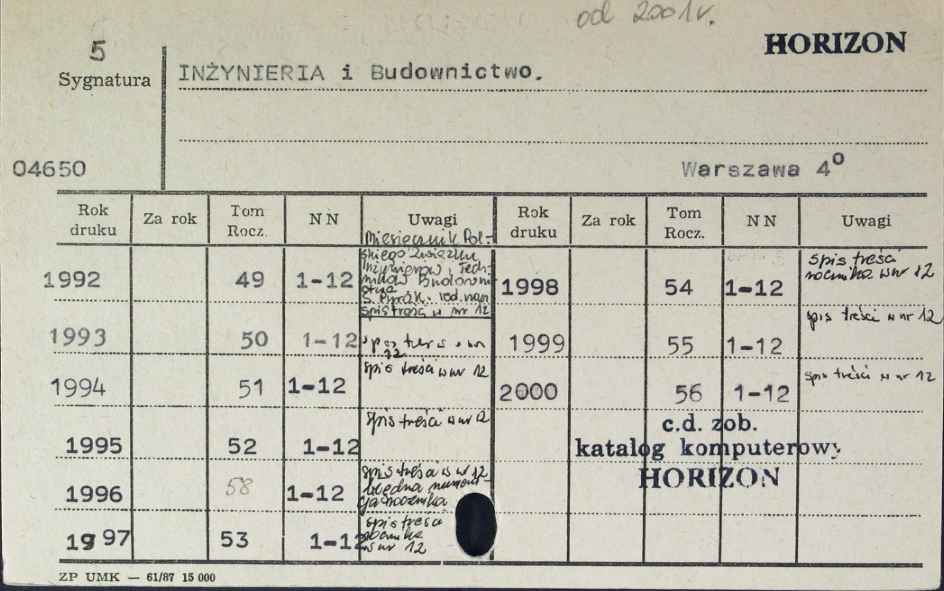 od 2001r.
HORIZON
5
Sygnatura
INŻYNIERIA i Budownictwo.
04650
Warszawa 4º
Rok druku Za rok Tom Rocz. NN Uwagi Rok druku Za rok Tom Rocz. NN Uwagi
Miesięcznik Pol-
skiego Związku
Inżynierów i Tech-
ników Budowni
ctwa
1992 49 1-12 spis treści w nr 12
1998 54 1-12 spis treści
rocznika w nr 12
1993 50 1-12
1999 55 1-12 spis treści w nr 12
1994 51 1-12 spis treści w nr 12
2000 56 1-12 spis treści w nr 12
c.d. zob.
1995 52 1-12 spis treści w nr 12
katalog komputerowy
HORIZON
1996 58 1-12 spis treści w nr 12
błędna numera-
cja rocznika
1997 53 1-12 spis treści
w nr 12
ZP UMK — 61/87 15 000